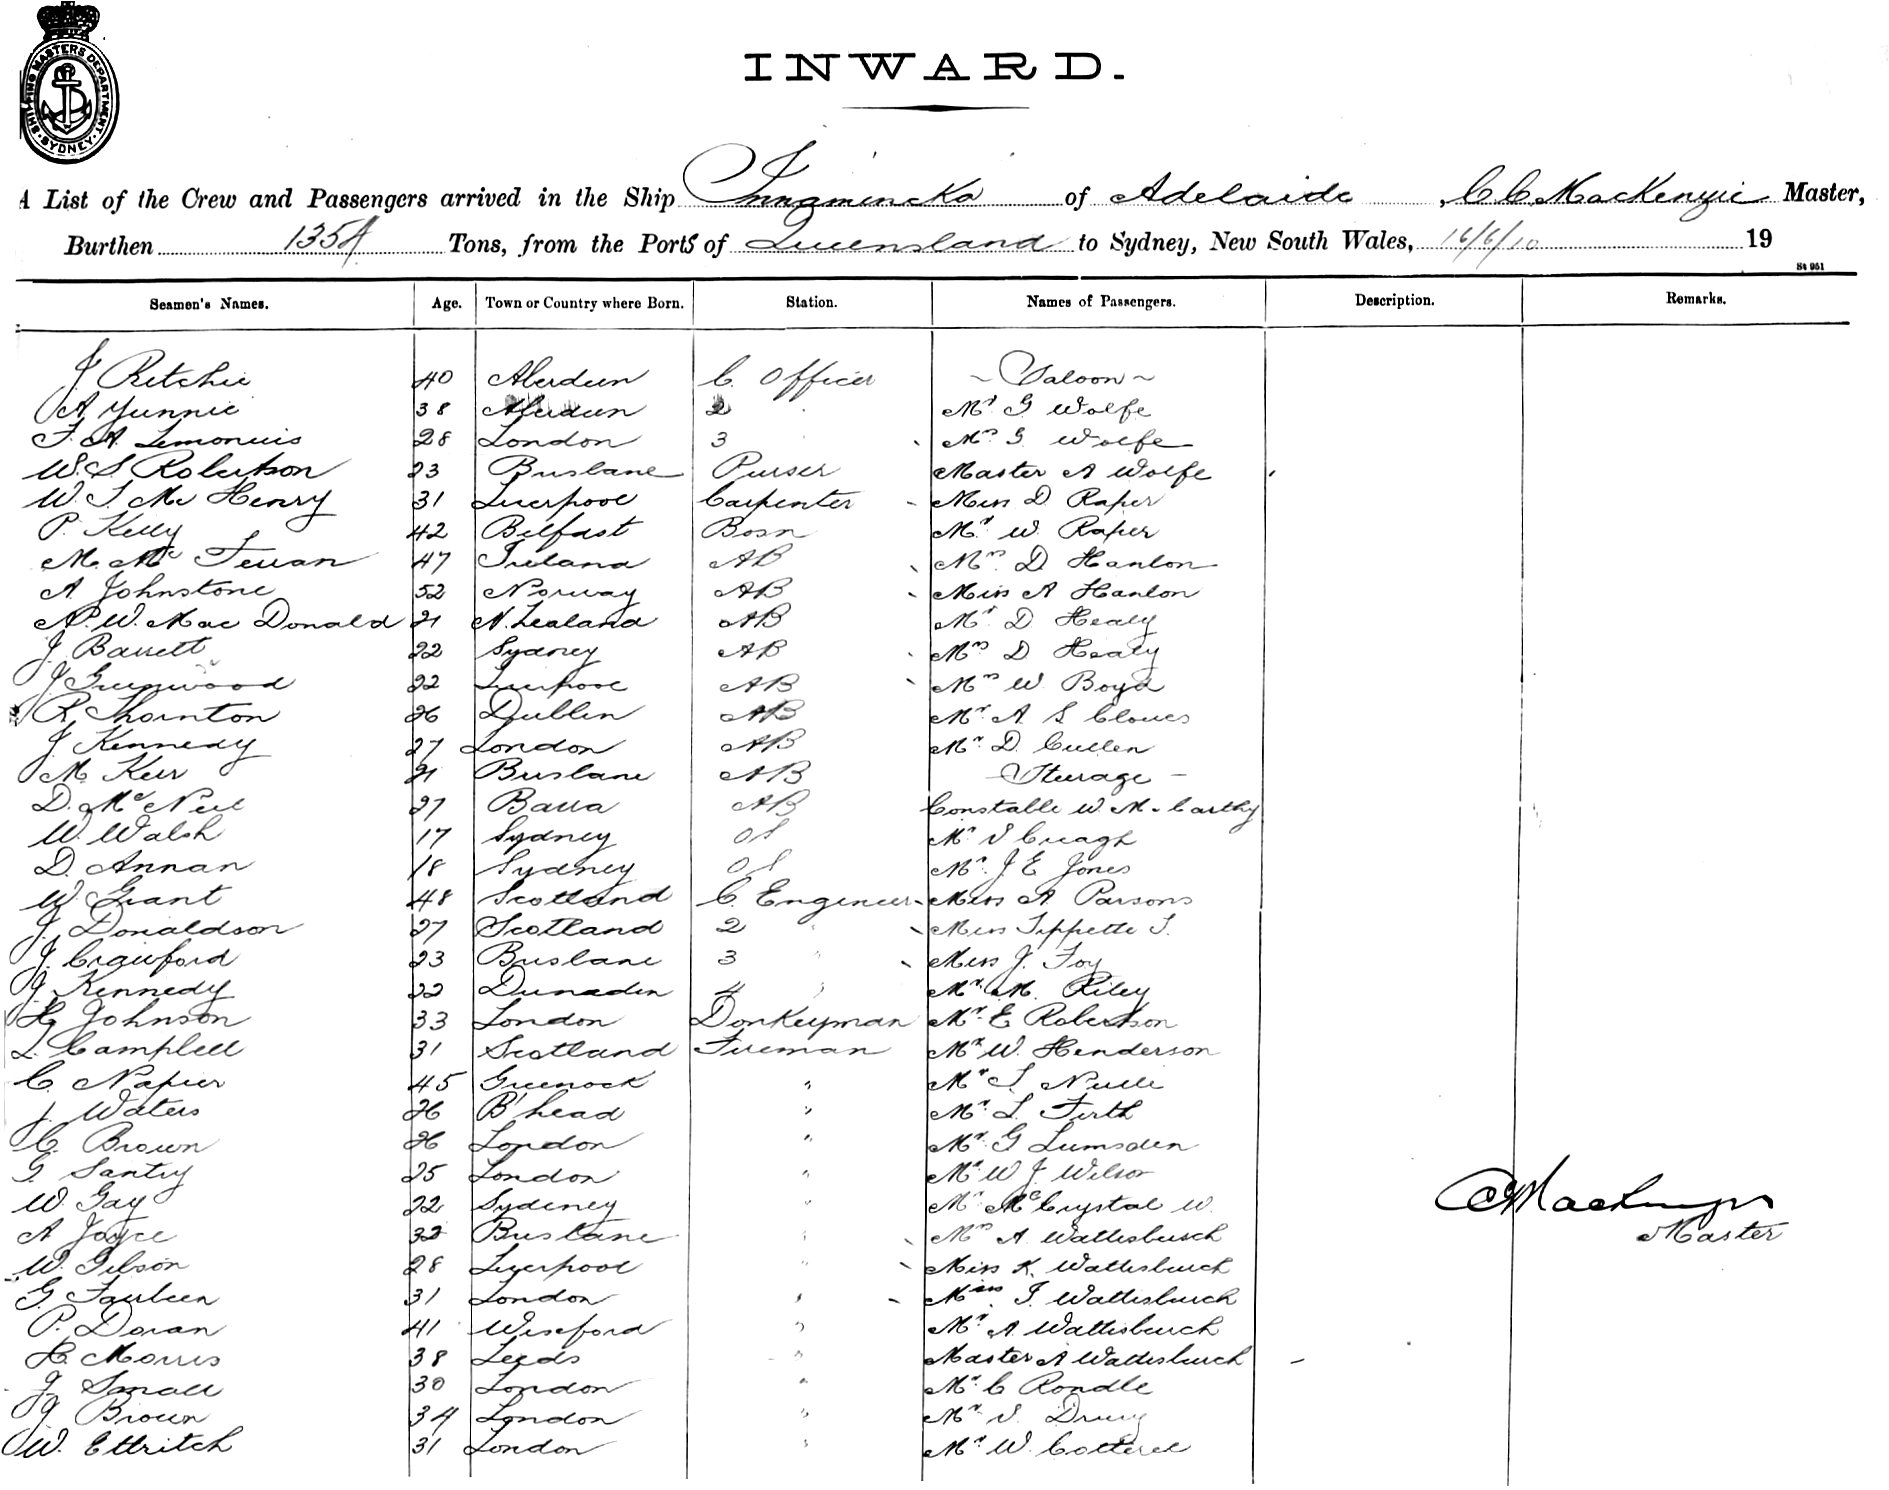 SHIPPING MASTERS DEPARTMENT · SYDNEY ·
INWARD.
A List of the Crew and Passengers arrived in the Ship Innamincka of Adelaide, C C MacKenzie Master,
Burthen 1354 Tons, from the Ports of Queensland to Sydney, New South Wales, 16/6/10 19
St 951
Seamen's Names. Age. Town or Country where Born. Station. Names of Passengers. Description. Remarks.
J Ritchie 40 Aberdeen C. Officer ~ Saloon ~
A Yunnie 38 Aberdeen 2 Mr G Wolfe
F. A. Lemonius 28 London 3 Mrs G Wolfe
W. S. Robertson 23 Brisbane Purser Master A Wolfe
W. J. Mc Henry 31 Liverpool Carpenter Miss D Raper
P. Kelly 42 Belfast Bosn Mr W Raper
M. Mc Ferran 47 Ireland AB Mrs D Hanlon
A Johnstone 52 Norway AB Miss A Hanlon
A. W. Mac Donald 21 N. Zealand AB Mr D Healy
J Barrett 22 Sydney AB Mrs D Healy
J Greenwood 22 Liverpool AB Mrs W Boyd
R Thornton 26 Dublin AB Mr A S Clowes
J Kennedy 27 London AB Mr D. Cullen
M. Kerr 21 Brisbane AB - Steerage -
D. Mc Neil 27 Barra AB Constable W McCarthy
W. Walsh 17 Sydney OS Mr S Creagh
D. Annan 18 Sydney OS Mr J E Jones
W Grant 48 Scotland C. Engineer Miss A Parsons
J Donaldson 27 Scotland 2 " Miss Tippette T.
J. Crawford 23 Brisbane 3 " Miss J. Foy
J Kennedy 22 Dunedin 4 " Mr M. Riley
H Johnson 33 London Donkeyman Mr E Robertson
L. Campbell 31 Scotland Fireman Mr W. Henderson
C. Napier 45 Greenock " Mr S Neille
J Waters 26 B'head " Mr L Firth
C. Brown 26 London " Mr G Lumsden
G Santry 25 London " Mr W J Wilson
W. Gay 22 Sydeney " Mr McCrystal W.
CMacKenzie
A Joyce 32 Brisbane " Mrs A. Wattisburch
Master
W. Gibson 28 Liverpool " Miss K. Wattisburch
G. Fairbein 31 London " Miss I. Wattisburch
P. Doran 41 Wexford " Mr A Wattisburch
H. Morris 38 Leeds " Master A Wattisburch
J Small 30 London " Mr C Rondle
J Brown 34 London " Mr S. Drury
W. Ettritch 31 London " Mr W Cotterel